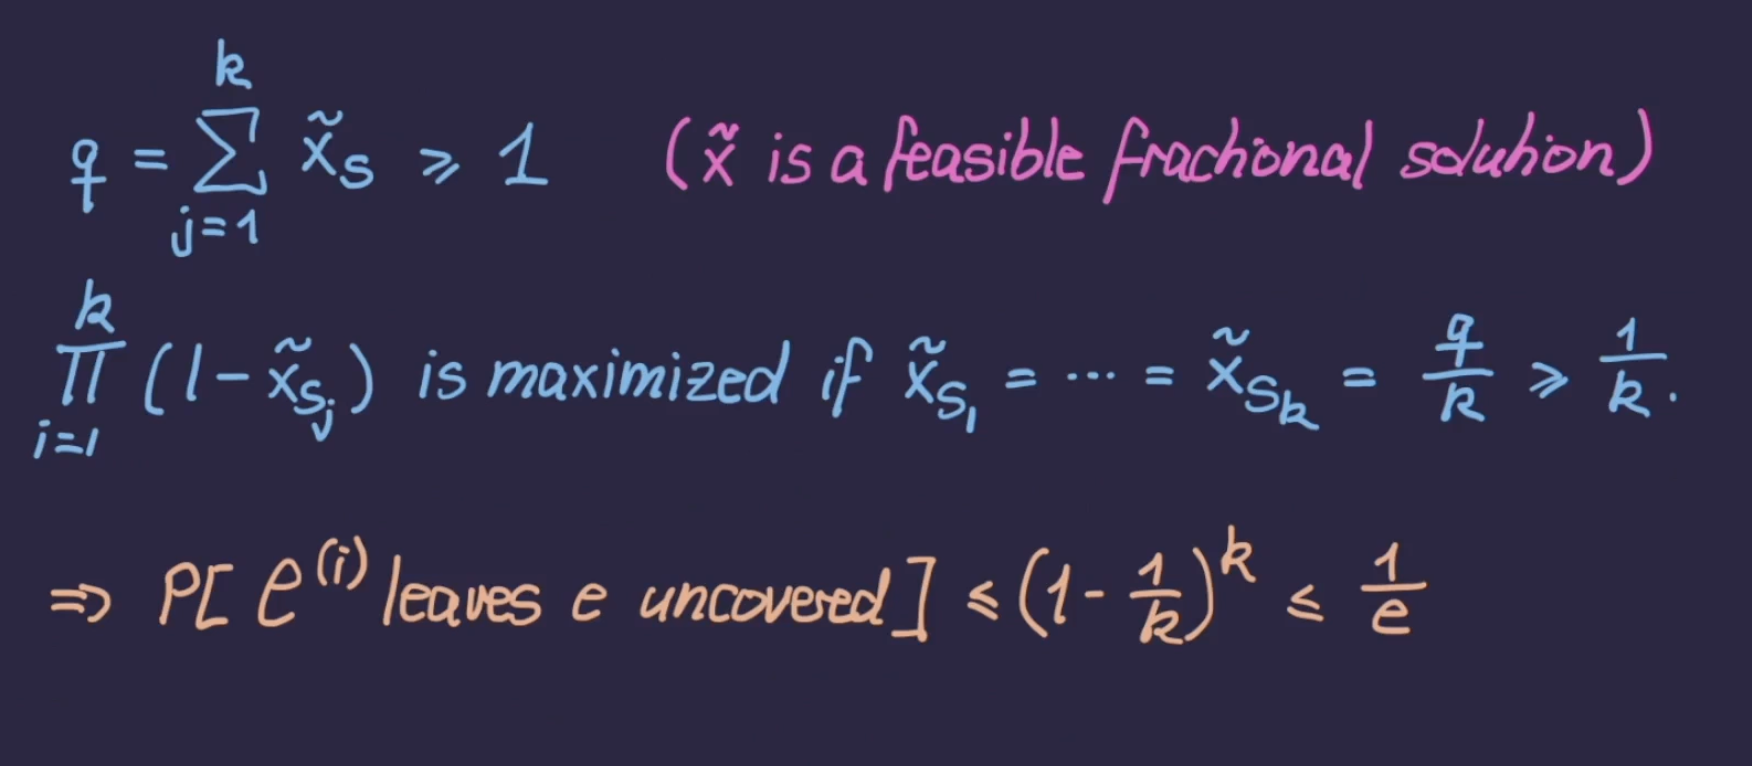 q = \sum_{j=1}^{k} \tilde{x}_S ⩾ 1 (\tilde{x} is a feasible frachional soluhion)
\prod_{i=1}^{k} (1 - \tilde{x}_{S_j}) is maximized if \tilde{x}_{S_1} = ⋯ = \tilde{x}_{S_k} = \frac{q}{k} ⩾ \frac{1}{k}.
⇒ P[ e^{(i)} leaves e uncovered ] ⩽ (1 - \frac{1}{k})^k ⩽ \frac{1}{e}